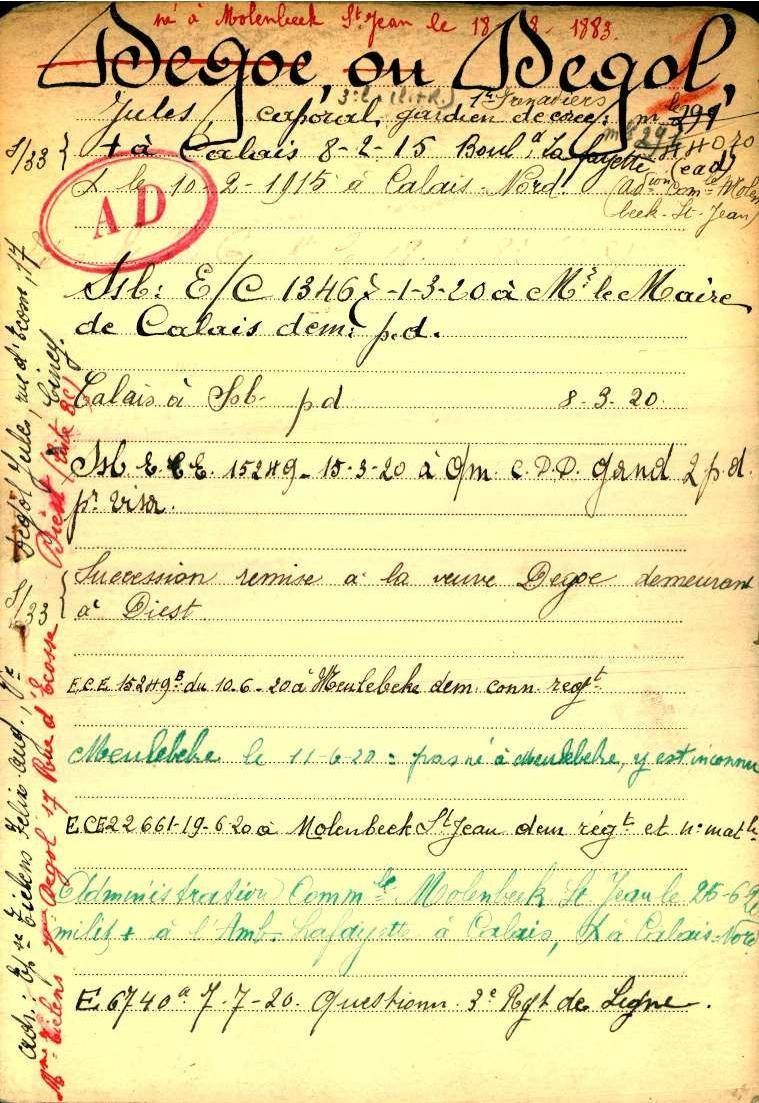 né à Molenbeek St Jean le 18-8-1883.
Degoe, ou Degol,
3e L (lith.) 1r Grenadiers
Jules, caporal, gardien de mle 299
S/33 { + à Calais 8-2-15 Boul. Lafayette (cad)
44070
+ le 10-2-1915 à Calais-Nord. (adion comle Molen
beek-St-Jean)
AD
Ssb: E/C 13467 -1-3-20 à Mr le Maire
de Calais dem: p.d.
Calais à Ssb. pd 8-3-20.
Ssb E.C.E. 15249- 15-3-20 à O/m. C.D.D. Gand 2 p.d.
pr visa.
S/33 { Succession remise a la veuve Degoe demeurant
à Diest.
E.C.E 15249B du 10.6-20 à Meulebeke dem. conn. regt
Meulebeke le 11-6-20 = pas né à Meulebeke, y est inconnu
ECE 22661-19-6-20 à Molenbeek St Jean dem régt et n: matle
Administration Commle Molenbeek St Jean le 25-6-
milit + à l'Amb. Lafayette à Calais, + à Calais-Nord
E 6740a 7-7-20. Questionn. 3e Rgt de Ligne.
Degol Jules, rue d'Ecom, 17
Ciney.
Diest (liste BC)
adr: Tielens Felix Aug.,
Mme Tielens Degol 17 Rue d'Ecosse